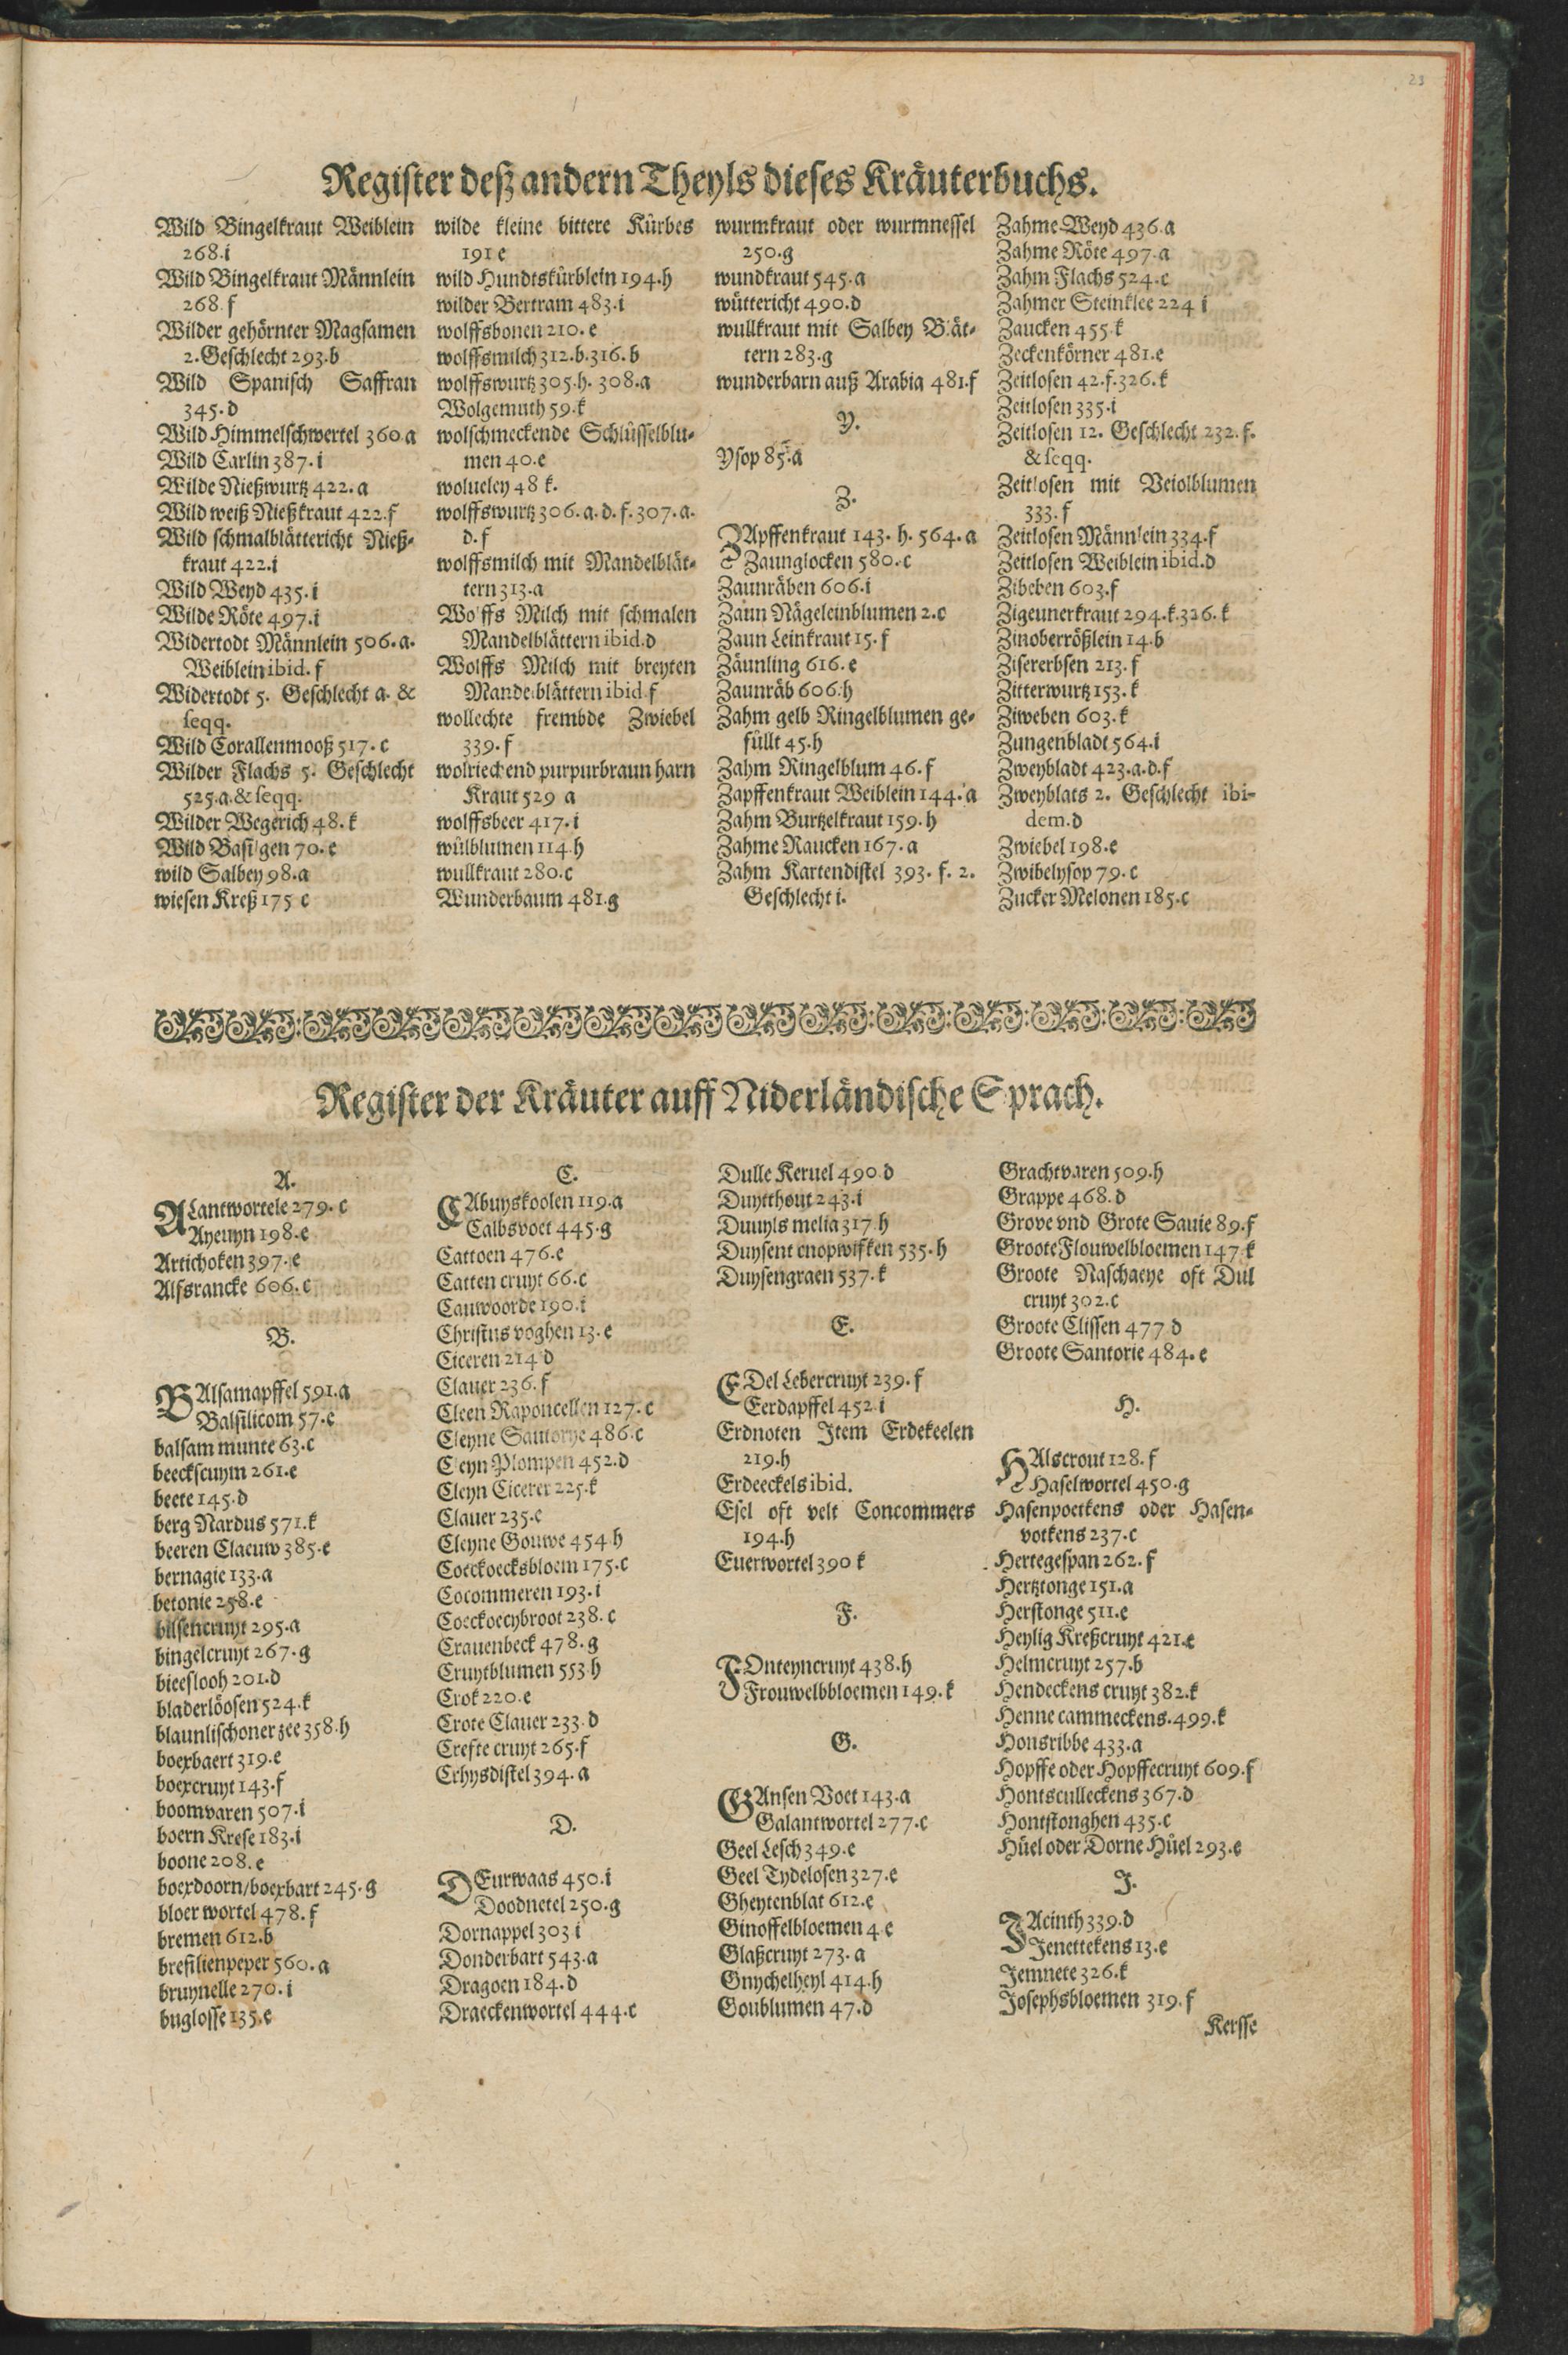 23
Register deß andern Theyls dieses Kräuterbuchs.
Wild Bingelkraut Weiblein
268.i
Wild Bingelkraut Männlein
268.f
Wilder gehörnter Magsamen
2. Geschlecht 293.b
Wild Spanisch Saffran
345.d
Wild Himmelschwertel 360.a
Wild Carlin 387.i
Wilde Nießwurtz 422.a
Wild weiß Nießkraut 422.f
Wild schmalblättericht Nieß-
kraut 422.i
Wild Weyd 435.i
Wilde Röte 497.i
Widertodt Männlein 506.a.
Weiblein ibid. f
Widertodt 5. Geschlecht a. &
seqq.
Wild Corallenmooß 517.c
Wilder Flachs 5. Geschlecht
525.a. & seqq.
Wilder Wegerich 48.k
Wild Basilgen 70.e
wild Salbey 98.a
wiesen Kreß 175 c
wilde kleine bittere Kürbes
191 e
wild Hundtskürblein 194.h
wilder Bertram 483.i
wolffsbonen 210.e
wolffsmilch 312.b. 316.b
wolffswurtz 305.h. 308.a
Wolgemuth 59.k
wolschmeckende Schlüsselblu-
men 40.e
wolueley 48 k.
wolffswurtz 306.a.d.f. 307.a.
d.f
wolffsmilch mit Mandelblät-
tern 313.a
Wolffs Milch mit schmalen
Mandelblättern ibid.d
Wolffs Milch mit breyten
Mandelblättern ibid.f
wollechte frembde Zwiebel
339.f
wolriechend purpurbraun harn
Kraut 529 a
wolffsbeer 417.i
wülblumen 114.h
wullkraut 280.c
Wunderbaum 481.g
wurmkraut oder wurmnessel
250.g
wundkraut 545.a
wütterich 490.d
wullkraut mit Salbey Blät-
tern 283.g
wunderbarn auß Arabia 481.f
Y.
Ysop 85.a
Z.
ZApffenkraut 143.h. 564.a
Zaunglocken 580.c
Zaunräben 606.i
Zaun Nägeleinblumen 2.c
Zaun Leinkraut 15.f
Zäunling 616.e
Zaunräb 606.h
Zahm gelb Ringelblumen ge-
füllt 45.h
Zahm Ringelblum 46.f
Zapffenkraut Weiblein 144.a
Zahm Burtzelkraut 159.h
Zahme Raucken 167.a
Zahm Kartendistel 393.f. 2.
Geschlecht i.
Zahme Weyd 436.a
Zahme Röte 497.a
Zahm Flachs 524.c
Zahmer Steinklee 224 i
Zaucken 455.k
Zeckenkörner 481.e
Zeitlosen 42.f. 326.k
Zeitlosen 335.i
Zeitlosen 12. Geschlecht 232.f.
& seqq.
Zeitlosen mit Veiolblumen
333.f
Zeitlosen Männlein 334.f
Zeitlosen Weiblein ibid.d
Zibeben 603.f
Zigeunerkraut 294.k. 326.k
Zinoberrößlein 14.b
Zisererbsen 213.f
Zitterwurtz 153.k
Ziweben 603.k
Zungenbladt 564.i
Zweybladt 423.a.d.f
Zweyblats 2. Geschlecht ibi-
dem.d
Zwiebel 198.e
Zwibelysop 79.c
Zucker Melonen 185.c
Register der Kräuter auff Niderländische Sprach.
A.
ALantwortele 279.c
Ayeuyn 198.e
Artichoken 397.e
Alfsrancke 606.c
B.
BAlsamapffel 591.a
Balsilicom 57.e
balsam munte 63.c
beeckscuym 261.e
beete 145.d
berg Nardus 571.k
beeren Claeuw 385.e
bernagie 133.a
betonie 258.e
bilsencruyt 295.a
bingelcruyt 267.g
bieeslooh 201.d
bladerlöosen 524.k
blaunlischoner zee 358.h
boexbaert 319.e
boexcruyt 143.f
boomvaren 507.i
boern Krese 183.i
boone 208.e
boexdoorn/boexbart 245.g
bloer wortel 478.f
bremen 612.b
bresilienpeper 560.a
bruynelle 270.i
buglosse 135.e
C.
CAbuyskoolen 119.a
Calbsvoet 445.g
Cattoen 476.e
Catten cruyt 66.c
Cauwoorde 190.i
Christus voghen 13.e
Ciceren 214 d
Clauer 236.f
Cleen Raponcellen 127.c
Cleyne Santorye 486.c
Cleyn Plompen 452.d
Cleyn Cicerer 225.k
Clauer 235.c
Cleyne Gouwe 454 h
Coeckoecksbloem 175.c
Cocommeren 193.i
Coeckoecybroot 238.c
Crauenbeck 478.g
Cruytblumen 553 h
Crok 220.e
Crote Clauer 233.d
Crefte cruyt 265.f
Crhysdistel 394.a
D.
DEurwaas 450.i
Doodnetel 250.g
Dornappel 303 i
Donderbart 543.a
Dragoen 184.d
Draeckenwortel 444.c
Dulle Keruel 490.d
Duytthout 243.i
Duuyls melia 317.h
Duysent cnopwifken 535.h
Duysengraen 537.k
E.
EDel Lebercruyt 239.f
Eerdapffel 452 i
Erdnoten Item Erdekeelen
219.h
Erdeeckels ibid.
Esel oft velt Concommers
194.h
Euerwortel 390 k
F.
FOnteyncruyt 438.h
Frouwelbbloemen 149.k
G.
GAnsen Voet 143.a
Galantwortel 277.c
Geel Lesch 349.e
Geel Tydelosen 327.e
Gheytenblat 612.e
Ginoffelbloemen 4.e
Glaßcruyt 273.a
Gnychelheyl 414.h
Goublumen 47.d
Grachtvaren 509.h
Grappe 468.d
Grove vnd Grote Sauie 89.f
Groote Flouwelbloemen 147 k
Groote Naschaeye oft Dul
cruyt 302.c
Groote Clissen 477 d
Groote Santorie 484.e
H.
HAlscrout 128.f
Haselwortel 450.g
Hasenpoetkens oder Hasen-
votkens 237.c
Hertegespan 262.f
Hertztonge 151.a
Herstonge 511.e
Heylig Kreßcruyt 421.e
Helmcruyt 257.b
Hendeckens cruyt 382.k
Henne cammeckens. 499.k
Honsribbe 433.a
Hopffe oder Hopffecruyt 609.f
Hontsculleckens 367.d
Hontstonghen 435.c
Hüel oder Dorne Hüel 293.e
J.
JAcinth 339.d
Jenettekens 13.e
Jemnete 326.k
Josephsbloemen 319.f
Kersse